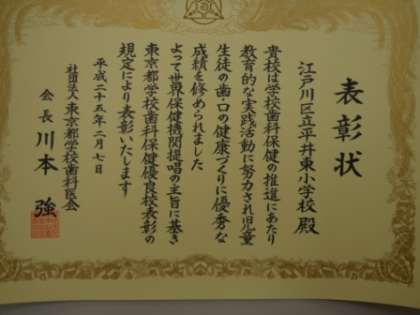 表彰状
江戸川区立平井東小学校 殿
貴校は学校歯科保健の推進にあたり
教育的な実践活動に努力され児童
生徒の歯・口の健康づくりに優秀な
成績を修められました
よって世界保健機関提唱の主旨に基き
東京都学校歯科保健優良校表彰の
規定により表彰いたします
平成二十五年二月七日
社団法人 東京都学校歯科医会
会長 川本 強